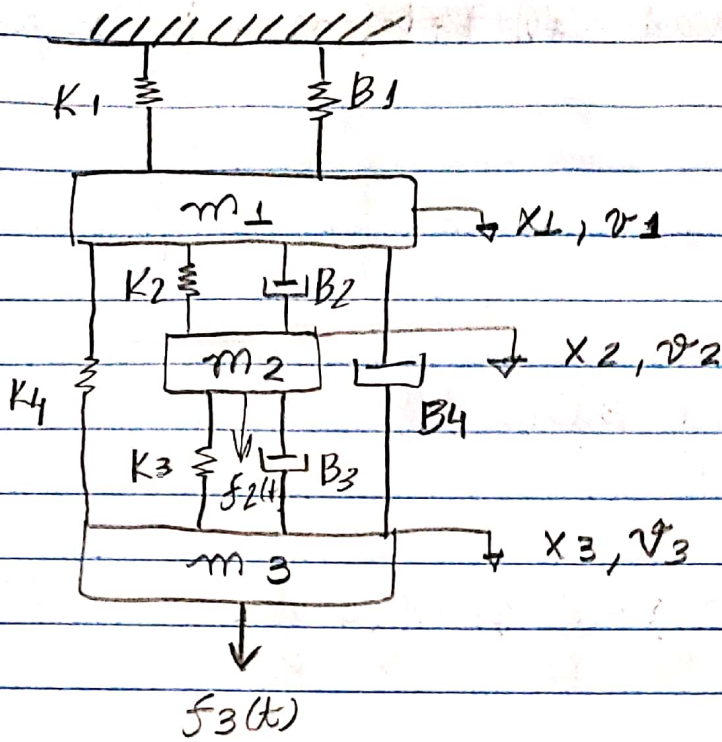 K1 B1
m1 x1, v1
K2 B2
m2 x2, v2
K4 B4
K3 f2(t) B3
m3 x3, v3
f3(t)